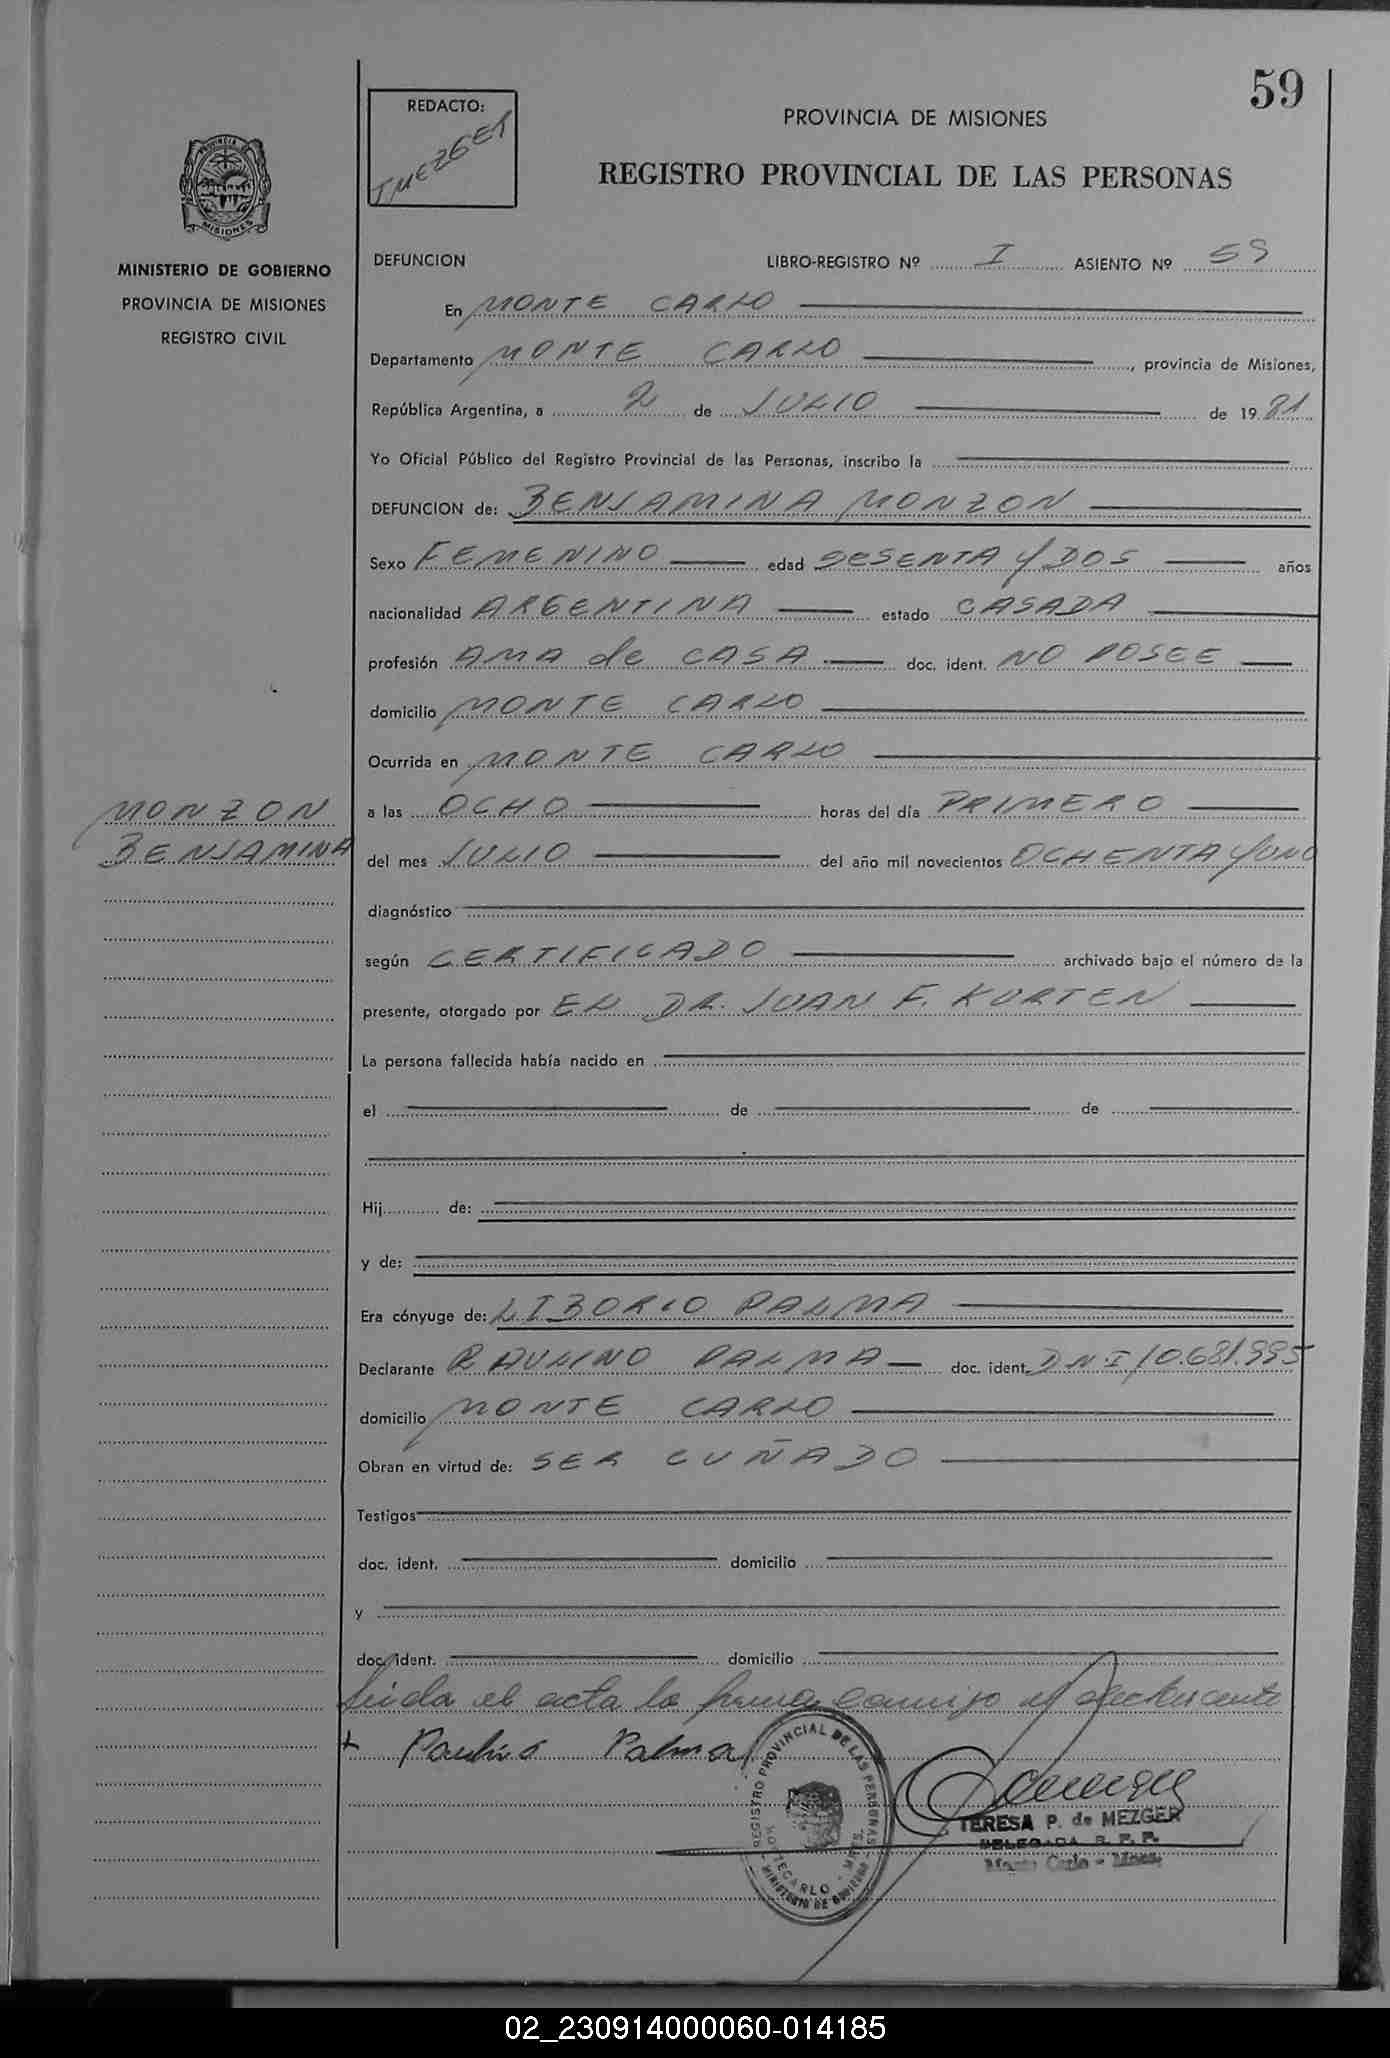 59
REDACTO:
T MEZGER
PROVINCIA DE MISIONES
REGISTRO PROVINCIAL DE LAS PERSONAS
PROVINCIA DE
MISIONES
MINISTERIO DE GOBIERNO
PROVINCIA DE MISIONES
REGISTRO CIVIL
DEFUNCION LIBRO-REGISTRO Nº I ASIENTO Nº 59
En MONTE CARLO
Departamento MONTE CARLO, provincia de Misiones,
República Argentina, a 2 de JULIO de 1981
Yo Oficial Público del Registro Provincial de las Personas, inscribo la
DEFUNCION de: BENJAMINA MONZON
Sexo FEMENINO edad SESENTA Y DOS años
nacionalidad ARGENTINA estado CASADA
profesión AMA de CASA doc. ident. NO POSEE
domicilio MONTE CARLO
Ocurrida en MONTE CARLO
MONZON
BENJAMINA
a las OCHO horas del día PRIMERO
del mes JULIO del año mil novecientos OCHENTA Y UNO
diagnóstico
según CERTIFICADO archivado bajo el número de la
presente, otorgado por EL DR. JUAN F. KURTEN
La persona fallecida había nacido en
el de de
Hij de:
y de:
Era cónyuge de: LIBORIO PALMA
Declarante RAULINO PALMA doc. ident. DNI 10.681.995
domicilio MONTE CARLO
Obran en virtud de: SER CUÑADO
Testigos
doc. ident. domicilio
y
doc. ident. domicilio
Leida el acta la firma conmigo el declarante
Palma
REGISTRO PROVINCIAL DE LAS PERSONAS
MONTECARLO - MNES.
MINISTERIO DE GOBIERNO
TERESA P. de MEZGER
DELEGADA R. P. P.
Monte Carlo - Mnes.
02_230914000060-014185